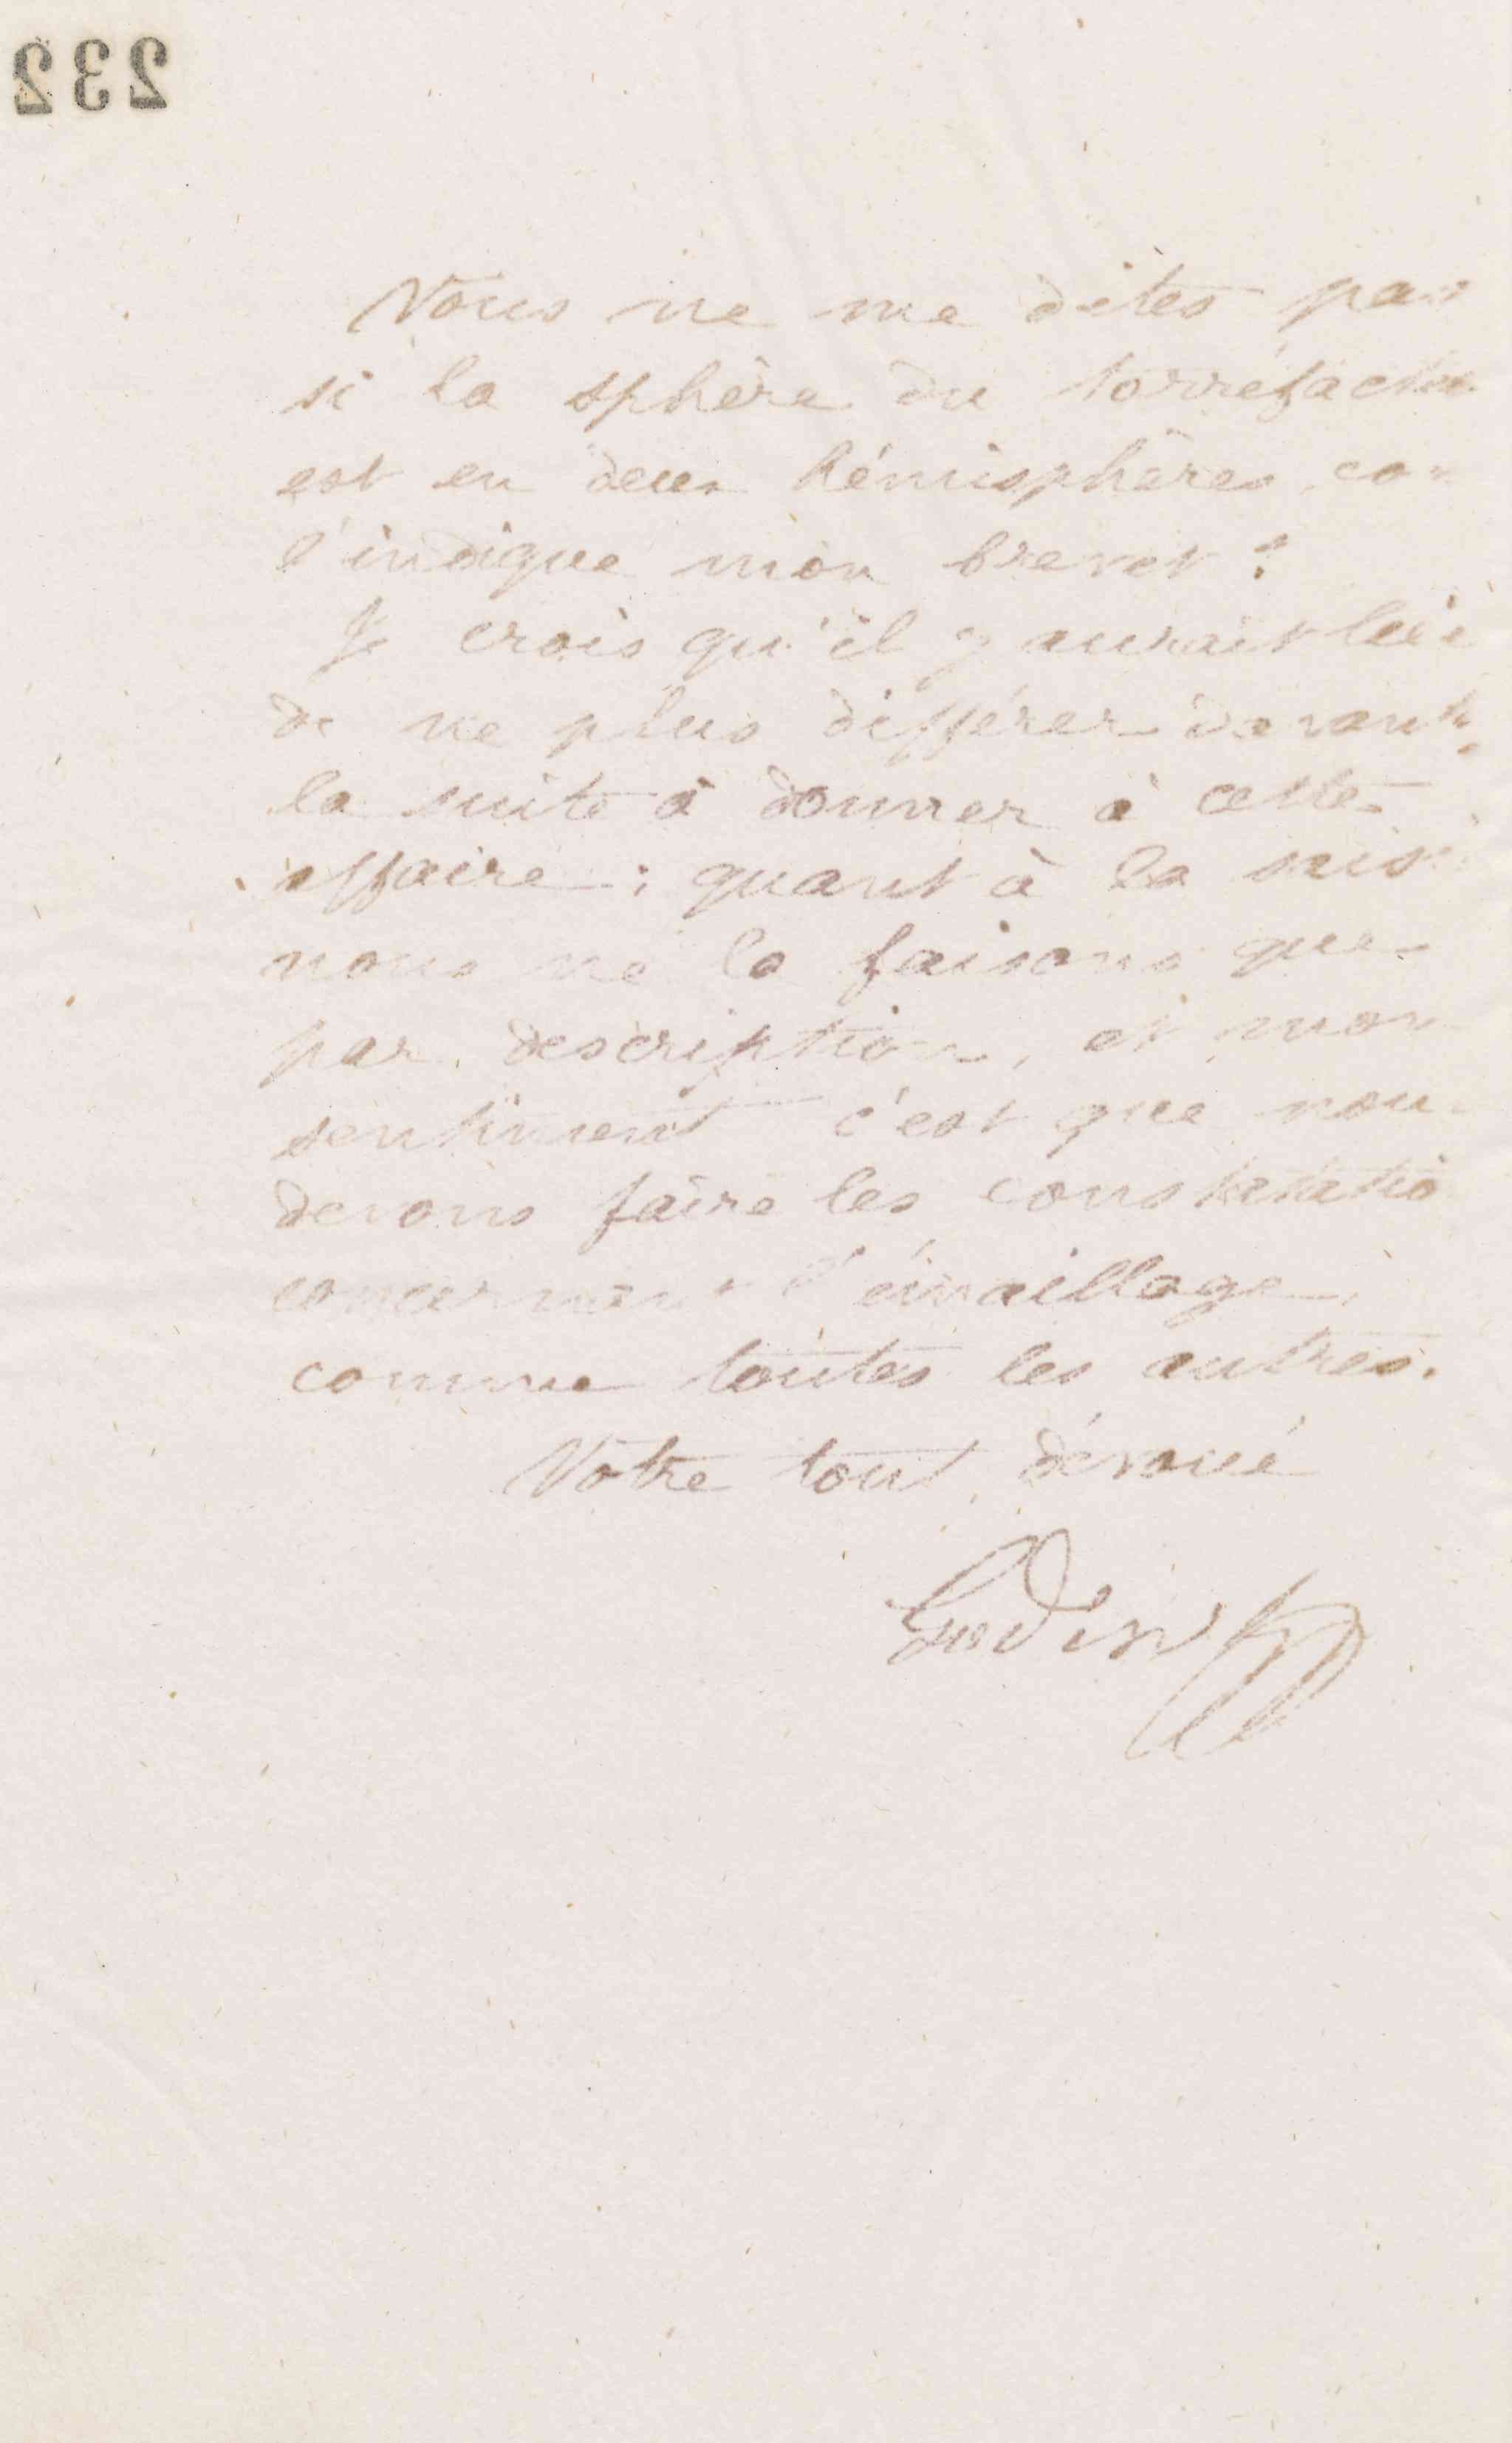 232
Vous ne me dites pas
si la sphère du torréfacteu
est en deux hémisphères co
l'indique mon brevet ?
Je crois qu'il y aurait lie
de ne plus différer davant
la suite à donner à cette
affaire ; quant à la sais
nous ne la faisons que
par description, et mon
sentiment c'est que nou
devons faire les constatatio
concernant l'émaillage
comme toutes les autres.
Votre tout dévoué
Godin